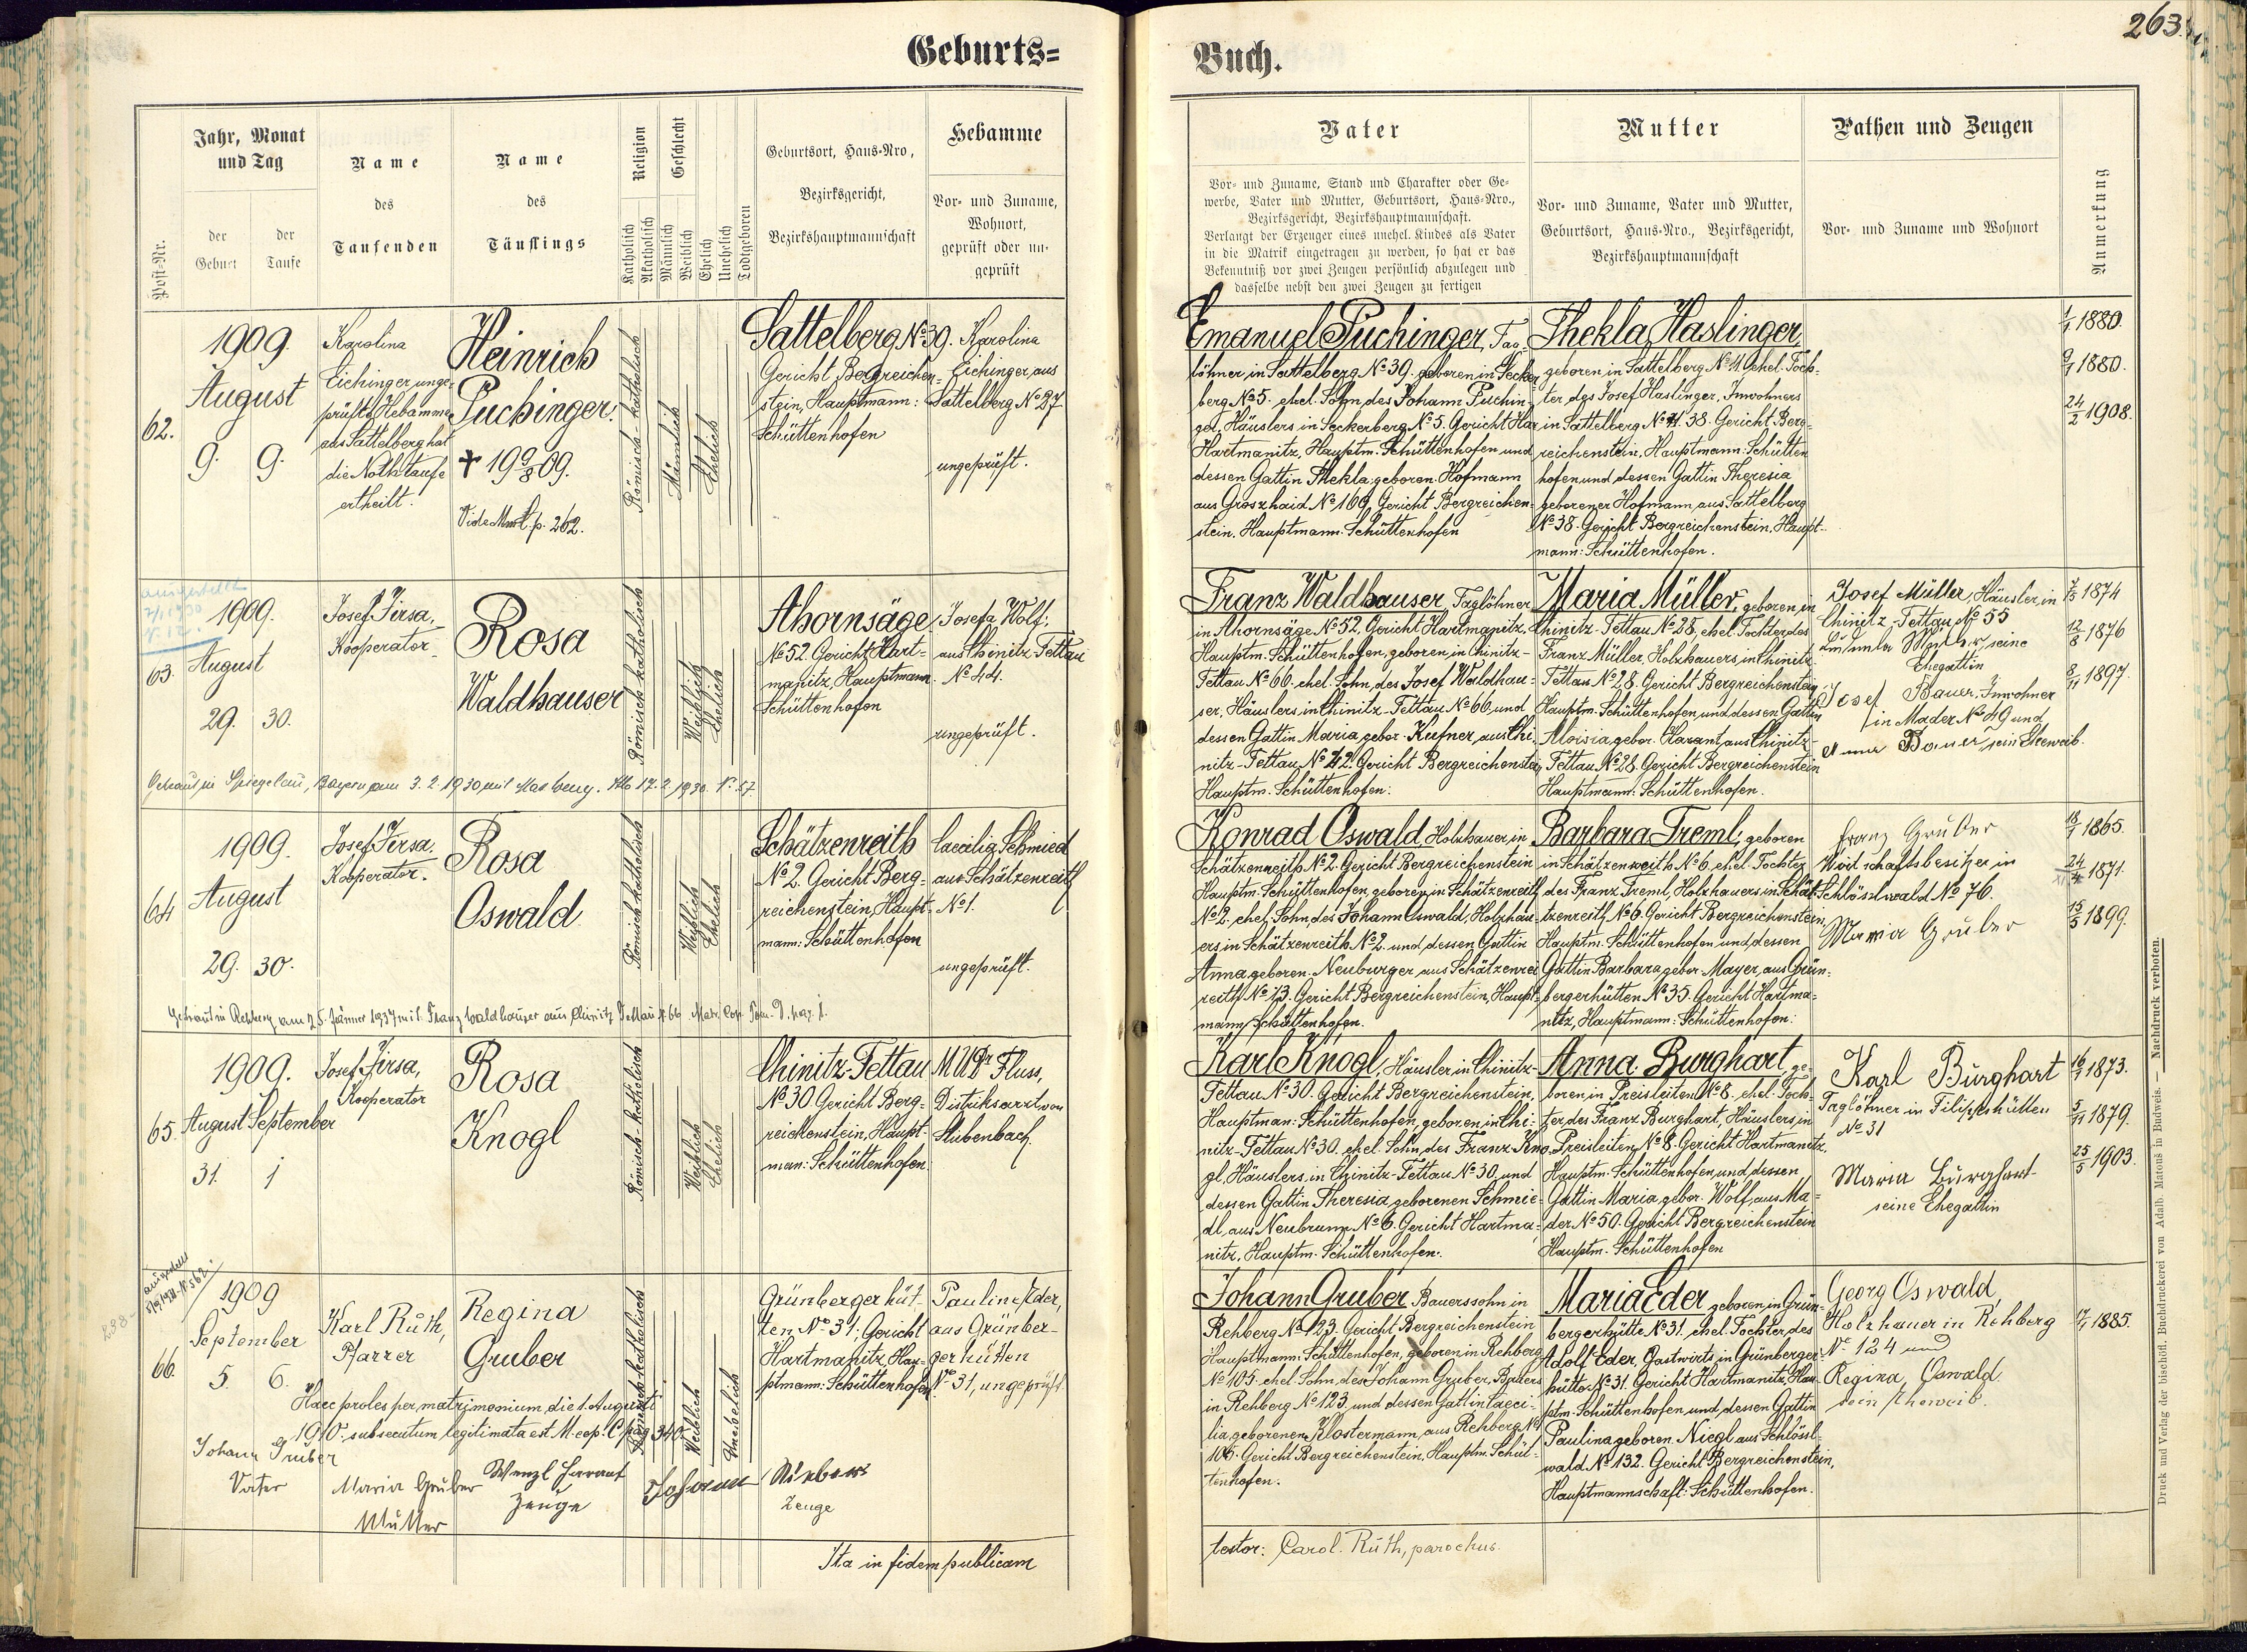 263.
Geburts=
Buch.
Post-Nr.
Jahr, Monat
und Tag
der
Geburt
der
Taufe
Name
des
Taufenden
Name
des
Täuflings
Religion
Katholisch
Akatholisch
Geschlecht
Männlich
Weiblich
Ehelich
Unehelich
Todtgeboren
Geburtsort, Haus-Nro,
Bezirksgericht,
Bezirkshauptmannschaft
Hebamme
Vor- und Zuname,
Wohnort,
geprüft oder un-
geprüft
Vater
Vor- und Zuname, Stand und Charakter oder Ge-
werbe, Vater und Mutter, Geburtsort, Haus-Nro.,
Bezirksgericht, Bezirkshauptmannschaft.
Verlangt der Erzeuger eines unehel. Kindes als Vater
in die Matrik eingetragen zu werden, so hat er das
Bekenntniß vor zwei Zeugen persönlich abzulegen und
dasselbe nebst den zwei Zeugen zu fertigen
Mutter
Vor- und Zuname, Vater und Mutter,
Geburtsort, Haus-Nro., Bezirksgericht,
Bezirkshauptmannschaft
Pathen und Zeugen
Vor- und Zuname und Wohnort
Anmerkung
62.
1909.
August
9. 9.
Karolina
Eichinger unge-
prüfte Hebamme
aus Sattelberg hat
die Nothtaufe
ertheilt.
Heinrich
Puchinger.
† 19 9/8 09.
Vide Mort. p. 262.
Römisch-katholisch
Männlich
Ehelich
Sattelberg No 39.
Gericht Bergreichen-
stein, Hauptmann:
Schüttenhofen
Karolina
Eichinger aus
Sattelberg No 27
ungeprüft.
Emanuel Puchinger, Tag-
löhner in Sattelberg No 39. geboren in Secker-
berg No 5. ehel. Sohn des Johann Puchin-
ger, Häuslers in Seckerberg No 5. Gericht
Hartmanitz, Hauptm. Schüttenhofen und
dessen Gattin Thekla geboren. Hofmann
aus Groszhaid No 160, Gericht Bergreichen-
stein. Hauptmann. Schüttenhofen
Thekla Haslinger,
geboren in Sattelberg No 41. ehel. Toch-
ter des Josef Haslinger, Inwohners
in Sattelberg No 38. Gericht Berg-
reichenstein, Hauptmann: Schütten
hofen und dessen Gattin Theresia
geborener Hofmann, aus Sattelberg
No 38. Gericht Bergreichenstein, Haupt-
mann: Schüttenhofen.
1/1 1880.
9/1 1880.
24/2 1908.
63.
1909.
August
29. 30.
Josef Jirsa,
Kooperator.
Rosa
Waldhauser
Römisch katholisch
Weiblich
Ehelich
Ahornsäge
No 52. Gericht Hart-
manitz, Hauptmann.
Schüttenhofen
Josefa Wolf,
aus Chinitz-Tettau
No 44.
ungeprüft.
Franz Waldhauser, Taglöhner
in Ahornsäge No 52, Gericht Hartmanitz,
Hauptm. Schüttenhofen, geboren in Chinitz-
Tettau No 66. ehel. Sohn, des Josef Waldhau-
ser, Häuslers in Chinitz-Tettau No 66 und
dessen Gattin Maria gebor. Kufner, aus Chi-
nitz-Tettau No 42. Gericht Bergreichenstein,
Hauptm. Schüttenhofen:
Maria Müller, geboren in
Chinitz-Tettau No 28, ehel. Tochter des
Franz Müller, Holzhauers in Chinitz
Tettau No 28. Gericht Bergreichenstein
Hauptm. Schüttenhofen und dessen Gattin
Aloisia gebor. Havant aus Chinitz-
Tettau No 28. Gericht Bergreichenstein
Hauptmann: Schüttenhofen.
Josef Müller, Häusler in
Chinitz-Tettau No 55
Müller, seine
Ehegattin
Josef Bauer, Inwohner
in Mader No 49 und
Anna Bauer, sein Eheweib.
7/5 1874
12/8 1876
8/11 1897.
Getraut in Spiegelau, Bayern am 3. 2. 1930 mit
64
1909.
August
29. 30.
Josef Jirsa,
Kooperator.
Rosa
Oswald
Römisch-katholisch
Weiblich
Ehelich
Schätzenreith
No 2. Gericht Berg-
reichenstein, Haupt-
mann: Schüttenhofen
Caecilia Schmied
aus Schätzenreith
No 1.
ungeprüft.
Konrad Oswald, Holzhauer in
Schätzenreith No 2. Gericht Bergreichenstein
Hauptm. Schüttenhofen, geboren in Schätzenreith
No 2. ehel. Sohn, des Johann Oswald, Holzhau-
ers in Schätzenreith No 2. und dessen Gattin
Anna geboren. Neuburger aus Schätzen-
reith No 13. Gericht Bergreichenstein, Haupt-
mann Schüttenhofen.
Barbara Treml, geboren
in Schätzenreith No 6, ehel. Tochter
des Franz Treml, Holzhauers in Schät-
tzenreith No 6. Gericht Bergreichenstein,
Hauptm. Schüttenhofen und dessen
Gattin Barbara gebor. Mayer, aus Grün-
bergerhütten No 35. Gericht Hartma-
nitz, Hauptmann: Schüttenhofen:
Franz Gruber
Wirtschaftsbesitzer in
Schlösslwald No 76.
Maria Gruber
18/1 1865.
24/4 1871.
15/5 1899.
Getraut in Rehberg am 25. Jänner 1937 mit Franz Waldhauser aus Chinitz Tettau N. 66. Matr. Cop. Tom. D. pag. 1.
65.
1909.
August September
31. 1
Josef Jirsa,
Kooperator
Rosa
Knogl
Römisch-katholisch
Weiblich
Ehelich
Chinitz-Tettau
No 30 Gericht Berg-
reichenstein, Haupt-
man: Schüttenhofen.
MUDr Fluss,
Distriksarzt von
Stubenbach.
Karl Knogl, Häusler in Chinitz-
Tettau No 30. Gericht Bergreichenstein,
Hauptman. Schüttenhofen, geboren in Chi-
nitz-Tettau No 30. ehel. Sohn, des Franz Kno-
gl, Häuslers in Chinitz-Tettau No 30. und
dessen Gattin Theresia geborenen Schmie-
dl aus Neubrunn No 6. Gericht Hartma-
nitz, Hauptm. Schüttenhofen.
Anna Burghart, ge-
boren in Preisleiten No 8. ehel. Toch-
ter des Franz Burghart, Häuslers in
Preisleiten No 8. Gericht Hartmanitz,
Hauptm. Schüttenhofen, und dessen
Gattin Maria gebor. Wolf, aus Ma-
der No 50. Gericht Bergreichenstein
Hauptm. Schüttenhofen
Karl Burghart
Taglöhner in Filipshütten
No 31
Maria Burghart
seine Ehegattin
16/1 1873.
5/11 1879.
25/5 1903.
66.
1909
September
5. 6.
Karl Rüth,
Pfarrer
Regina
Gruber
Römisch-katholisch
Weiblich
Unehelich
Grünbergerhüt-
ten, No 31; Gericht
Hartmanitz, Hau-
ptmann: Schüttenhofen
Pauline Eder,
aus Grünber-
gerhütten
No 31, ungeprüft.
Johann Gruber, Bauerssohn in
Rehberg No 123. Gericht Bergreichenstein
Hauptmann: Schüttenhofen, geboren in Rehberg
No 105. ehel. Sohn, des Johann Gruber, Bauers
in Rehberg No 123. und dessen Gattin Caeci-
lia, geborenen Klostermann, aus Rehberg No
106. Gericht Bergreichenstein, Hauptm. Schüt-
tenhofen.
Maria Eder, geboren in Grün-
bergerhütte No 31. ehel. Tochter des
Adolf Eder, Gastwirts in Grünberger-
hütte No 31. Gericht Hartmanitz, Hau-
ptm. Schüttenhofen und dessen Gattin
Paulina geboren. Niegl aus Schlössl-
wald No 132. Gericht Bergreichenstein,
Hauptmannschaft: Schüttenhofen.
Georg Oswald,
Holzhauer in Rehberg
No 124 und
Regina Oswald
sein Eheweib.
17/1 1885.
Haec proles per matrimonium die 1. Augusti
1910. subsecutum legitimata est. M. cop. C. pag. 340.
Johann Gruber
Vater
Maria Gruber
Mutter
Wenzl Havant
Zeuge
Johann
Zeuge
Ita in fidem publicam
testor: Carol. Rüth, parochus.
Druck und Verlag der bischöfl. Buchdruckerei von Adalb. Matouš in Budweis. — Nachdruck verboten.